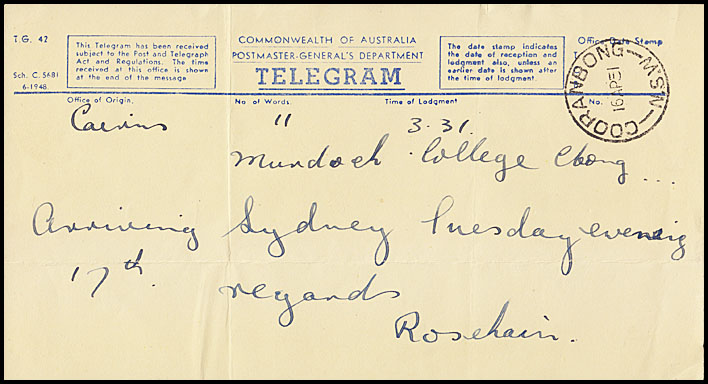 T.G. 42
Sch. C. 5681
6-1948.
This Telegram has been received
subject to the Post and Telegraph
Act and Regulations. The time
received at this office is shown
at the end of the message
COMMONWEALTH OF AUSTRALIA
POSTMASTER-GENERAL'S DEPARTMENT
TELEGRAM
The date stamp indicates
the date of reception and
lodgment also, unless an
earlier date is shown after
the time of lodgment.
Office Date Stamp
COORANBONG - N.S.W
16 AP 51
Office of Origin. No. of Words. Time of Lodgment No.
Cairns 11 3.31.
Murdoch College Cbong ...
Arriving Sydney Tuesday evening
17th. regards
Rosehain.